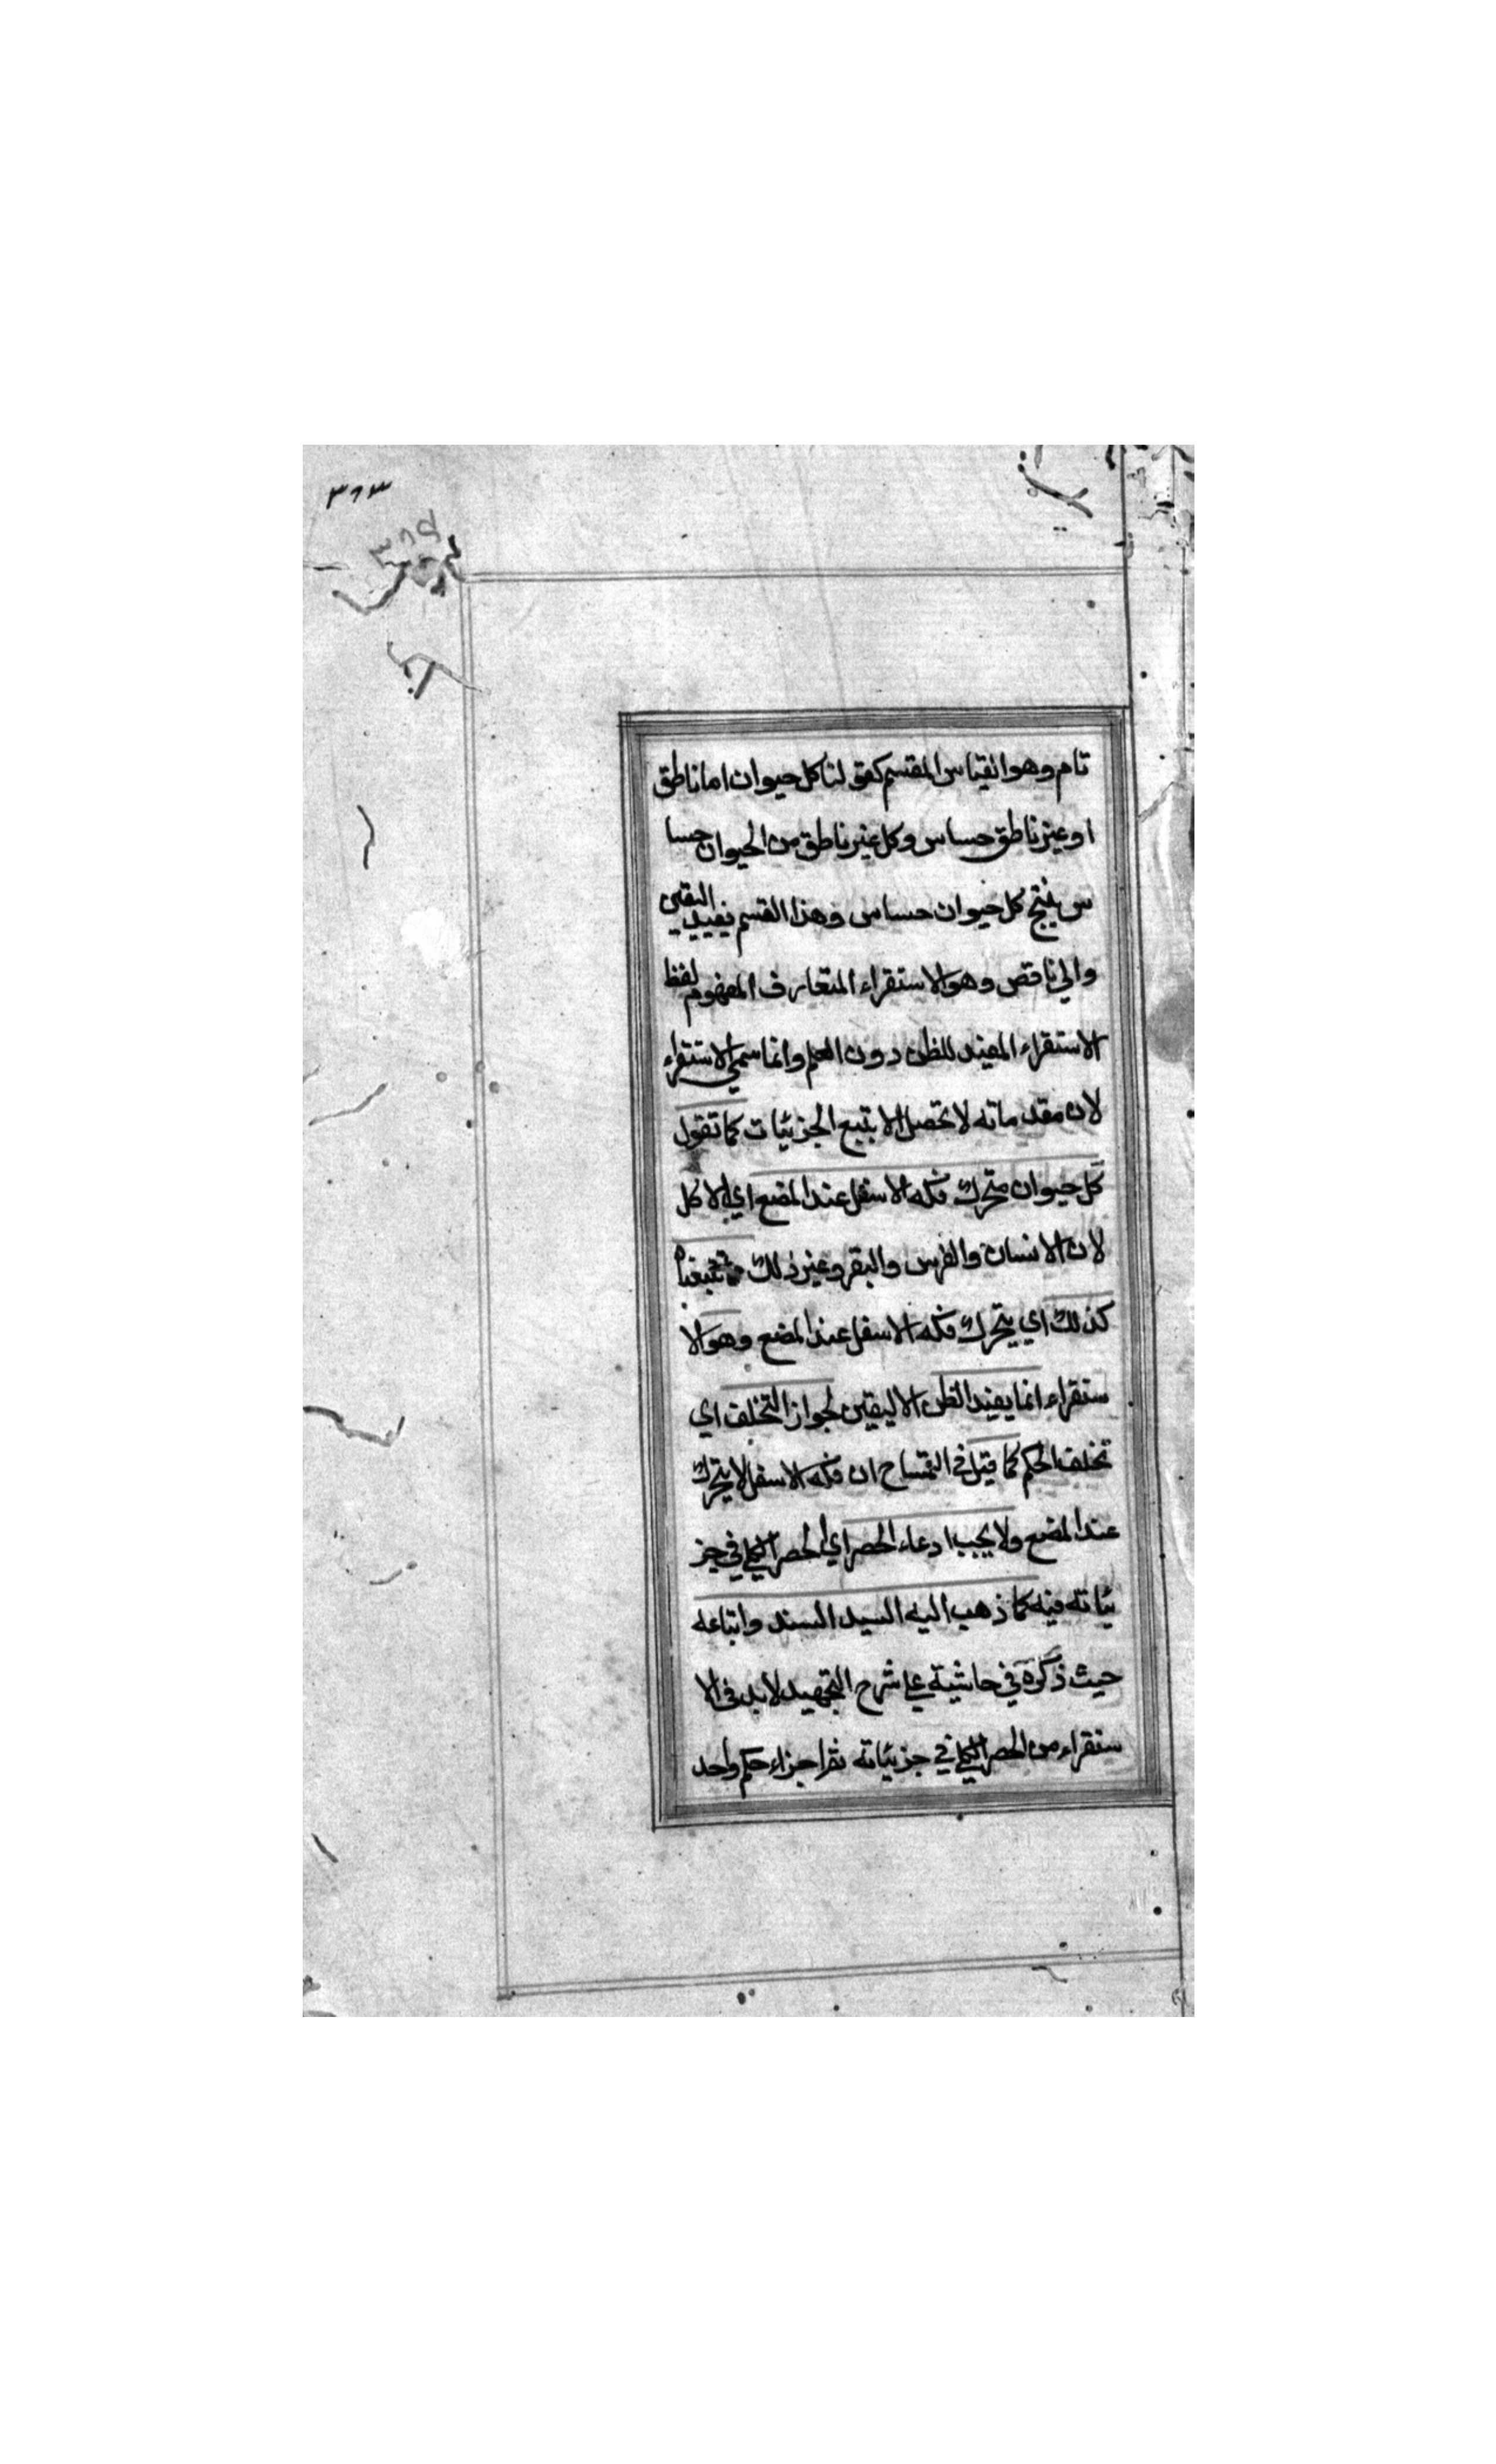 ٣٦٣
٣٨٤
تام وهو القياس المقسم كقولنا كل حيوان اما ناطق
او غير ناطق حساس وكل غير ناطق من الحيوان حسا
س ينتج كل حيوان حساس وهذا القسم يفيد اليقين
والى ناقص وهو الاستقراء المتعارف المفهوم لفظ
الاستقراء المفيد للظن دون العلم وانما سمي الاستقراء
لان مقدماته لا تحصل الا بتبع الجزئيات كما تقول
كل حيوان متحرك فكه الاسفل عند المضغ اي الاكل
لان الانسان والفرس والبقر وغير ذلك مما تتبعناه
كذلك اي يتحرك فكه الاسفل عند المضغ وهو الا
ستقراء انما يفيد الظن لا اليقين لجواز التخلف اي
تخلف الحكم كما قيل في التمساح ان فكه الاسفل لا يتحرك
عند المضغ ولا يجب ادعاء الحصر اي الحصر الكلي في جز
ئياته فيه كما ذهب اليه السيد السند واتباعه
حيث ذكره في حاشية على شرح التجهيد لا بد في الا
ستقراء من الحصر الكلي في جزئياته ثم اجراء حكم واحد